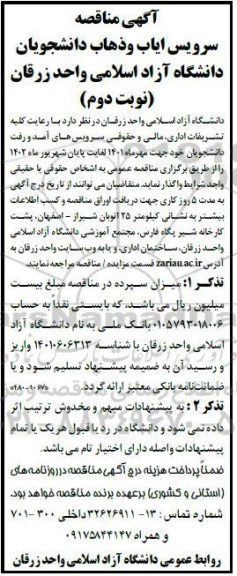 آگهی مناقصه
سرویس ایاب وذهاب دانشجویان
دانشگاه آزاد اسلامی واحد زرقان
(نوبت دوم)
دانشگاه آزاد اسلامی واحد زرقان در نظر دارد با رعایت کلیه
تشریفات اداری، مالی و حقوقی سرویس های آمد و رفت
دانشجویان خود جهت مهرماه ۱۴۰۱ لغایت پایان شهریور ماه ۱۴۰۲
را از طریق برگزاری مناقصه عمومی به اشخاص حقوقی یا حقیقی
واجد شرایط واگذار نماید. متقاضیان می توانند از تاریخ درج آگهی
به مدت ۵ روز کاری جهت دریافت اوراق مناقصه و کسب اطلاعات
بیشتر به نشانی کیلومتر ۲۵ اتوبان شیراز - اصفهان، پشت
کارخانه شیر پگاه فارس، مجتمع آموزشی دانشگاه آزاد اسلامی
واحد زرقان، ساختمان اداری، و یا به وب سایت واحد زرقان به
آدرس zariau.ac.ir قسمت مزایده / مناقصه مراجعه نمایند.
تذکر ۱: میزان سپرده در مناقصه مبلغ بیست
میلیون ریال می باشد، که بایستی نقداً به حساب
۰۱۰۵۷۹۳۰۱۸۰۰۶ بانک ملی به نام دانشگاه آزاد
اسلامی واحد زرقان با شناسه ۱۴۰۱۰۶۰۶۳۱۳ واریز
و رسید آن به ضمیمه پیشنهاد تسلیم شود و یا
ضمانت‌نامه بانکی معتبر ارائه گردد.
تذکر ۲: به پیشنهادات مبهم و مخدوش ترتیب اثر
داده نمی شود و دانشگاه در رد یا قبول هریک یا تمام
پیشنهادات واصله دارای اختیار تام می باشد.
ضمناً پرداخت هزینه درج آگهی مناقصه در روزنامه‌های
(استانی و کشوری) برعهده برنده مناقصه خواهد بود.
شماره تماس: ۱۳- ۳۲۶۲۶۹۱۱ داخلی ۳۰۰ -۷۰۱
و همراه ۰۹۱۷۵۸۴۴۱۴۷
روابط عمومی دانشگاه آزاد اسلامی واحد زرقان